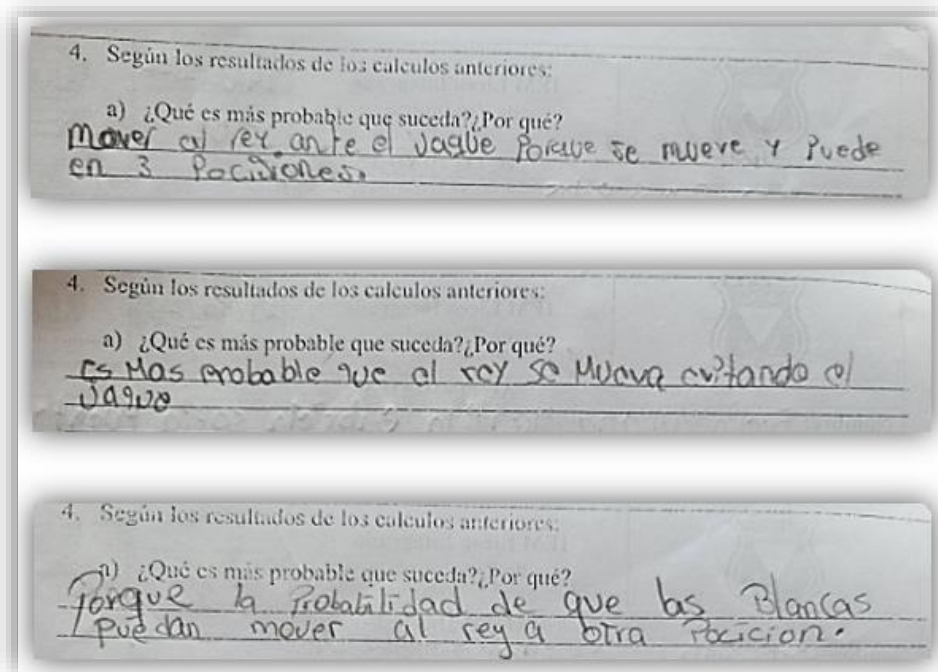 4. Según los resultados de los calculos anteriores:
a) ¿Qué es más probable que suceda?¿Por qué?
mover al rey ante el Jaque Porque se mueve y Puede
en 3 Pociciones.
4. Según los resultados de los calculos anteriores:
a) ¿Qué es más probable que suceda?¿Por qué?
Es Mas probable que el rey se Mueva evitando el
Jaque
4. Según los resultados de los calculos anteriores:
a) ¿Qué es más probable que suceda?¿Por qué?
Porque la Probabilidad de que las Blancas
Puedan mover al rey a otra Pocicion.